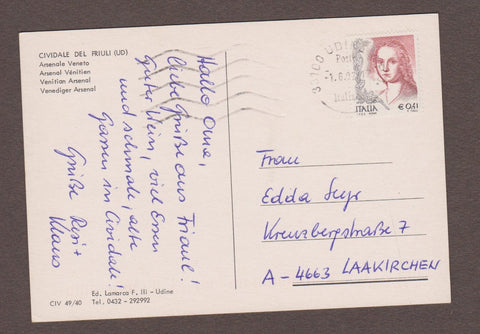 CIVIDALE DEL FRIULI (UD)
Arsenale Veneto
Arsenal Vénitien
Venitian Arsenal
Venediger Arsenal
Hallo Oma,
liebe Grüße aus Friaul!
Guter Wein, viel Essen
und schmale, alte
Gassen in Cividale!
Grüße Resi +
Klaus
33100 UDINE
Poste
Italia
ITALIA
€ 0,41
Frau
Edda
Kreuzbergstraße 7
A-4663 LAAKIRCHEN
CIV 49/40
Ed. Lamarca F. lli - Udine
Tel. 0432 - 292992